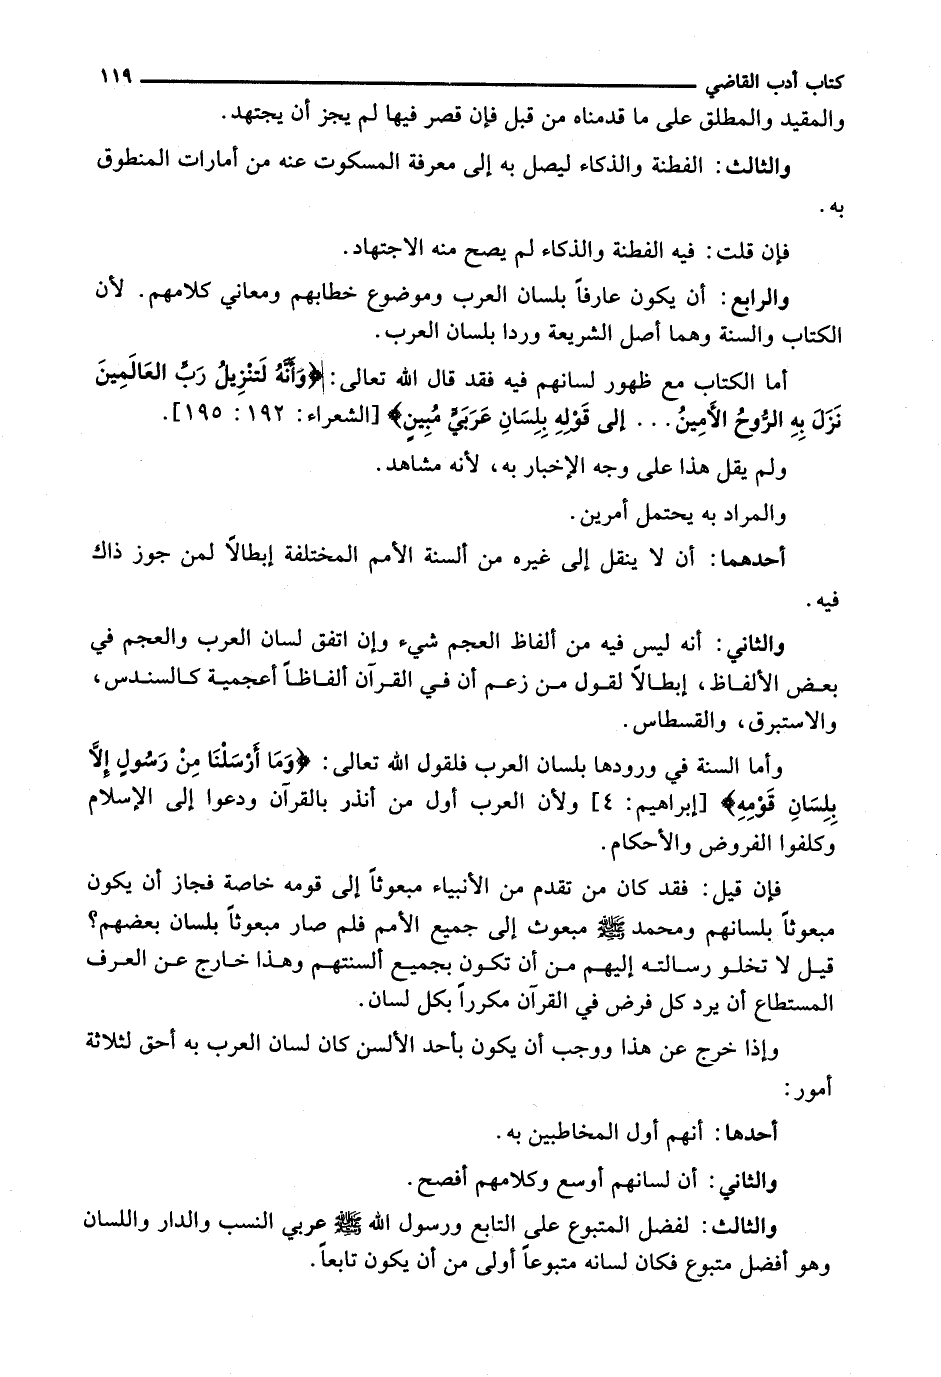 كتاب أدب القاضي ١١٩
والمقيد والمطلق على ما قدمناه من قبل فإن قصر فيها لم يجز أن يجتهد.
والثالث: الفطنة والذكاء ليصل به إلى معرفة المسكوت عنه من أمارات المنطوق
به.
فإن قلت: فيه الفطنة والذكاء لم يصح منه الاجتهاد.
والرابع: أن يكون عارفاً بلسان العرب وموضوع خطابهم ومعاني كلامهم. لأن
الكتاب والسنة وهما أصل الشريعة وردا بلسان العرب.
أما الكتاب مع ظهور لسانهم فيه فقد قال الله تعالى: ﴿وَأَنَّهُ لَتَنْزِيلُ رَبِّ العَالَمِينَ
نَزَلَ بِهِ الرُّوحُ الأَمِينُ... إلى قَوْلِهِ بِلِسَانٍ عَرَبَيٍّ مُبِينٍ﴾ [الشعراء: ١٩٢: ١٩٥].
ولم يقل هذا على وجه الإخبار به، لأنه مشاهد.
والمراد به يحتمل أمرين.
أحدهما: أن لا ينقل إلى غيره من ألسنة الأمم المختلفة إبطالاً لمن جوز ذاك
فيه.
والثاني: أنه ليس فيه من ألفاظ العجم شيء وإن اتفق لسان العرب والعجم في
بعض الألفاظ، إبطالاً لقول من زعم أن في القرآن ألفاظاً أعجمية كالسندس،
والاستبرق، والقسطاس.
وأما السنة في ورودها بلسان العرب فلقول الله تعالى: ﴿وَمَا أَرْسَلْنَا مِنْ رَسُولٍ إِلاَّ
بِلِسَانِ قَوْمِهِ﴾ [إبراهيم: ٤] ولأن العرب أول من أنذر بالقرآن ودعوا إلى الإسلام
وكلفوا الفروض والأحكام.
فإن قيل: فقد كان من تقدم من الأنبياء مبعوثاً إلى قومه خاصة فجاز أن يكون
مبعوثاً بلسانهم ومحمد ﷺ مبعوث إلى جميع الأمم فلم صار مبعوثاً بلسان بعضهم؟
قيل لا تخلو رسالته إليهم من أن تكون بجميع ألسنتهم وهذا خارج عن العرف
المستطاع أن يرد كل فرض في القرآن مكرراً بكل لسان.
وإذا خرج عن هذا ووجب أن يكون بأحد الألسن كان لسان العرب به أحق لثلاثة
أمور:
أحدها: أنهم أول المخاطبين به.
والثاني: أن لسانهم أوسع وكلامهم أفصح.
والثالث: لفضل المتبوع على التابع ورسول الله ﷺ عربي النسب والدار واللسان
وهو أفضل متبوع فكان لسانه متبوعاً أولى من أن يكون تابعاً.